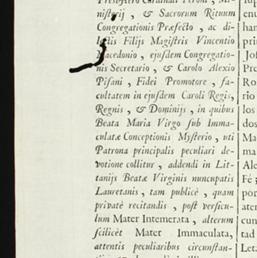 Presbytero Cardinali Peroni, Mi-
nistrij, & Sacrorum Rituum
Congregationis Præfecto, ac di-
lectis Filijs Magistris Vincentio
Macedonio, ejusdem Congregatio-
nis Secretario, & Carolo Alexio
Pisani, Fidei Promotore, fa-
cultatem in ejusdem Caroli Regis,
Regnis, & Dominijs, in quibus
Beata Maria Virgo sub Imma-
culatæ Conceptionis Mysterio, uti
Patrona principalis peculiari de-
votione collitur, addendi in Lit-
tanijs Beatæ Virginis nuncupatis
Lauretanis, tam publicè, quam
privatè recitandis, post versicu-
lum Mater Intemerata, alterum
scilicèt Mater Immaculata,
attentis peculiaribus circunstan-